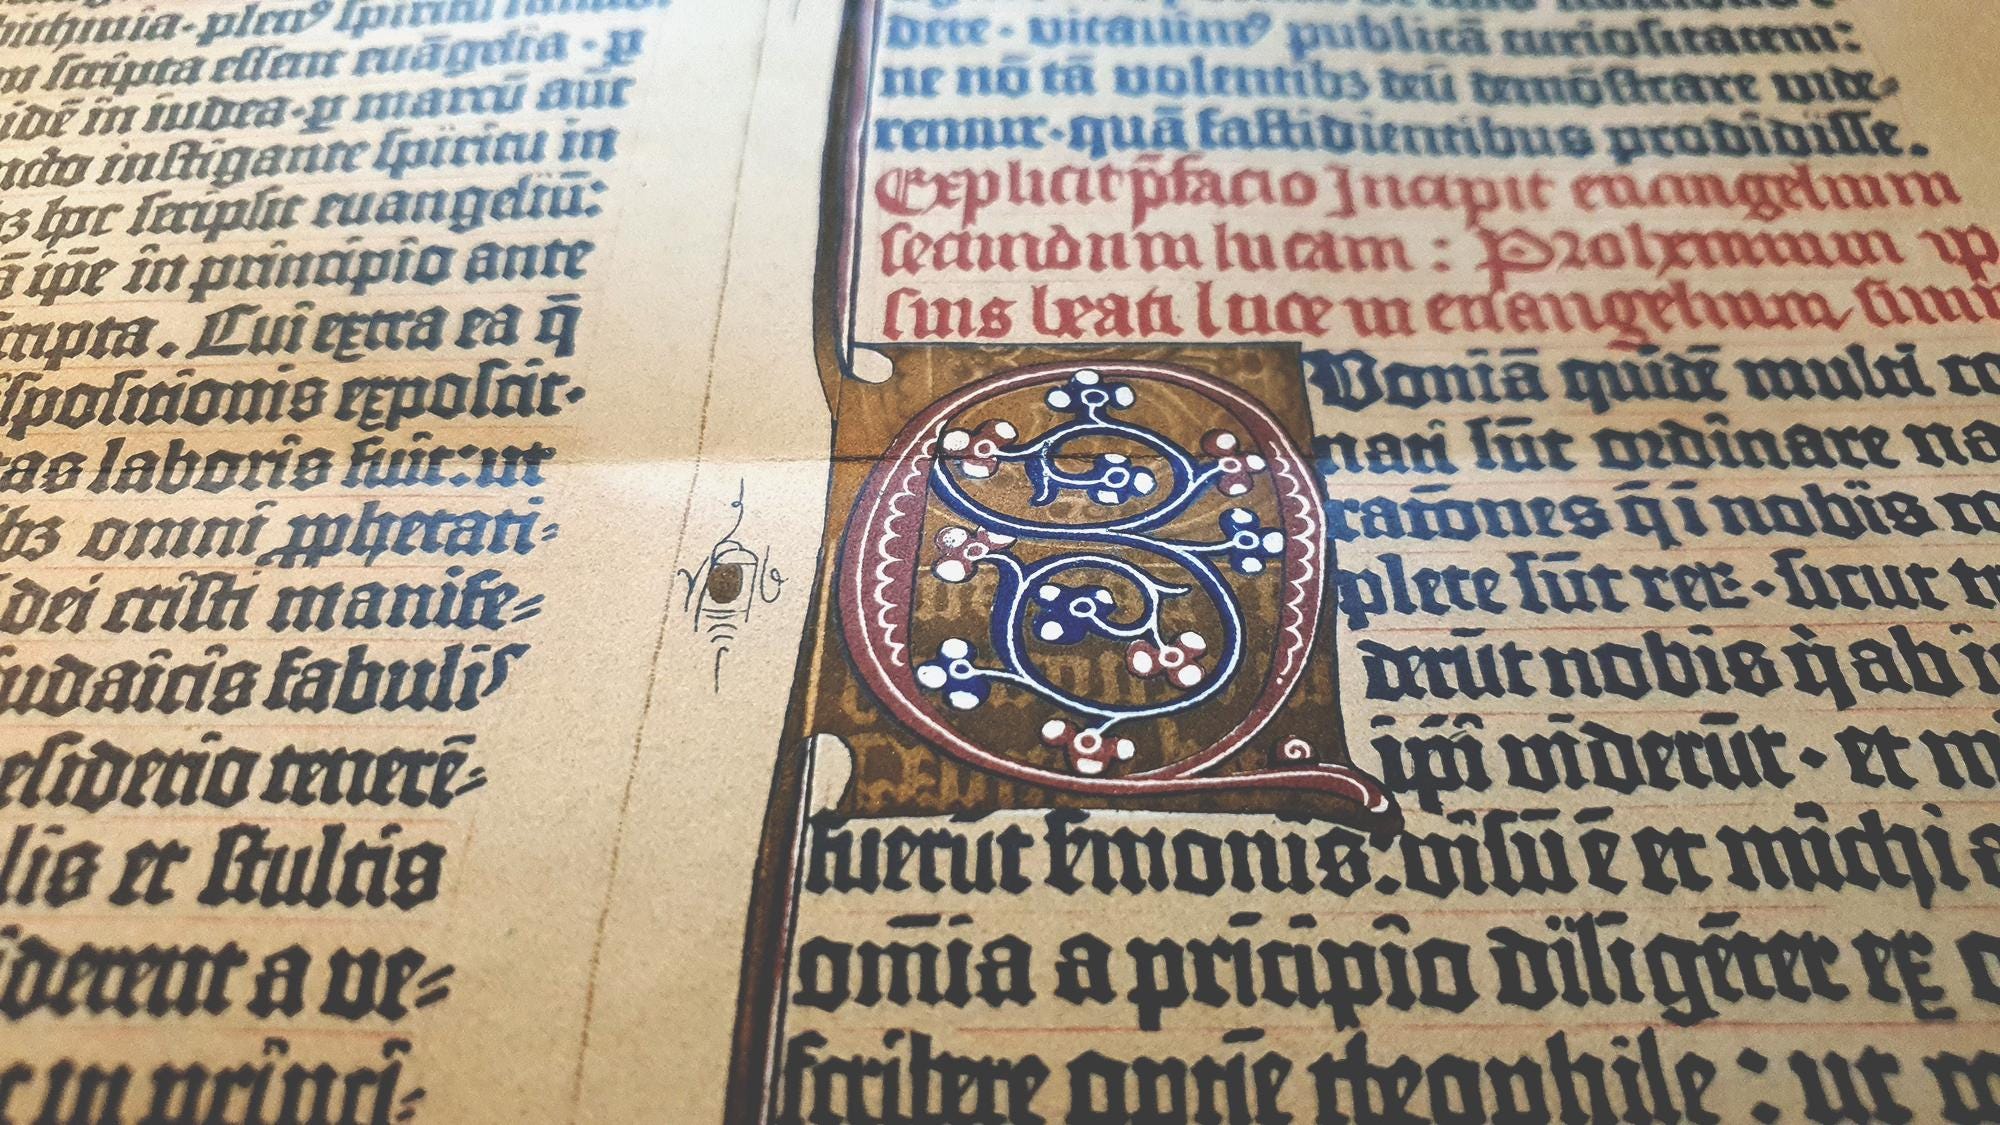 plenꝰ spiritu sancto
scripta essent euāgelia · ꝑ
in iudea · ꝑ marcū aūt
instigante spiritu in
hec scripsit euangeliū:
ip̄e in principio ante
scripta. Cui extra ea q̄
exposcit·
laboris fuit: ut
omni ꝓphetati-
dei cristi manife-
iudaicis fabulis
desiderio tenerē-
et stultis
a ve-
in princi-
dere · vitauimꝰ publicā curiositatem:
ne nō tā volentibꝫ deū demōstrare vide-
remur · quā fastidientibus prodidisse.
Explicit p̄facio Incipit euangelium
secundum lucam : Prohemium ip
sius beati luce in euangelium suum
Quoniā quidē multi co
nati sūt ordinare na
rationes q̄ i nobis co
plete sūt reꝝ · sicut tr
derūt nobis q̇ ab i
ip̄i viderūt · et m
fuerūt ẜmonis: visū ē et michi a
om̄ia a pricipio diligēter ex o
scribere optīe theophile : ut